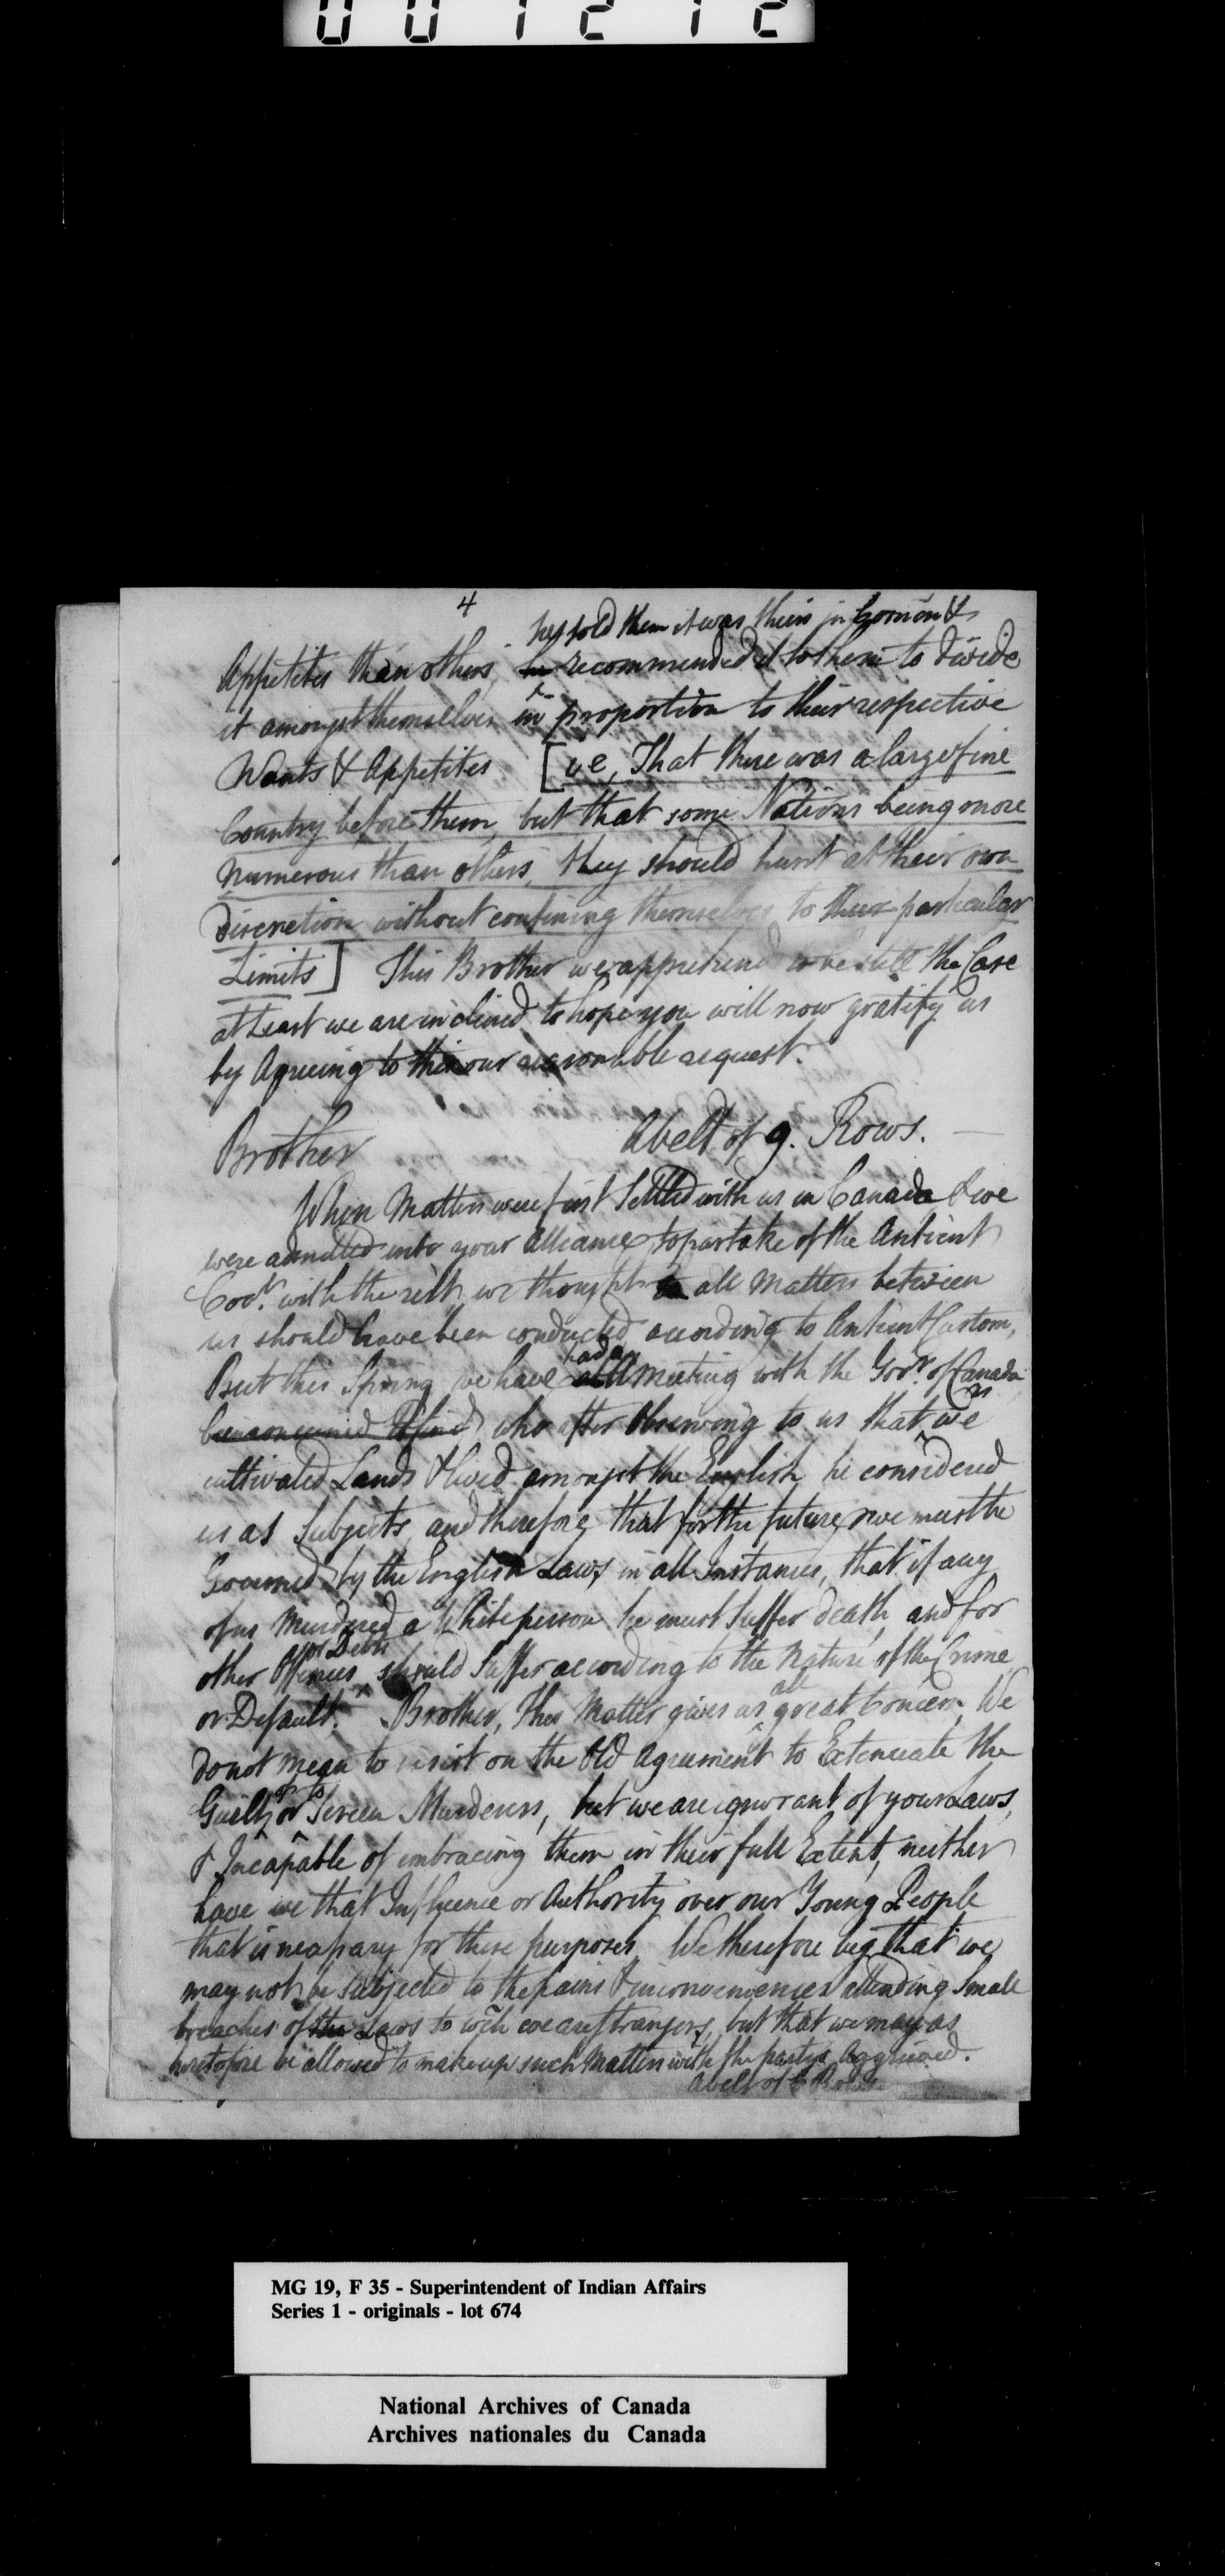 001212
4
he told them it was theirs in Common &
Appetites than others, he recommended it to them to divide
it amongst themselves in proportion to their respective
Wants & Appetites [ie, That there was a large fine
Country before them, but that some Nations being more
numerous than others, they should hunt at their own
discretion without confining themselves to their particular
Limits] This Brother we apprehend to be still the Case
at least we are inclined to hope you will now gratify us
by Agreeing to this our reasonable request.
Abelt of 9. Rows.
Brother
When Matters were first Settled with us in Canada & we
were admitted into your Alliance & to partake of the Antient
Covt. with the rest, we thought all Matters between
us should have been conducted according to Antient Custom,
had a
But this Spring we have a Meeting with the Govr. of Canada
as
who after Observing to us that we
cultivated Lands & lived amongst the English he considered
us as Subjects, and therefore that for the future we must be
Governed by the English Laws in all Instances, that if any
of us Murdered a White person he must Suffer death, and for
or Debts
other Offences should Suffer according to the Nature of the Crime
all
or Default. Brother, This Matter gives us great Concern, We
do not mean to insist on the Old Agreement to Extenuate the
or to
Guilt or Screen Murderers, but we are ignorant of your Laws,
& Incapable of embracing them in their full Extent, neither
have we that Influence or Authority over our Young People
that is necessary for these purposes, We therefore beg that we
may not be Subjected to the pains & inconveniences attending Small
breaches of the Laws to wch we are strangers, but that we may as
heretofore be allowed to make up such Matters with the partys Aggrieved.
Abelt of
MG 19, F 35 - Superintendent of Indian Affairs
Series 1 - originals - lot 674
National Archives of Canada
Archives nationales du Canada